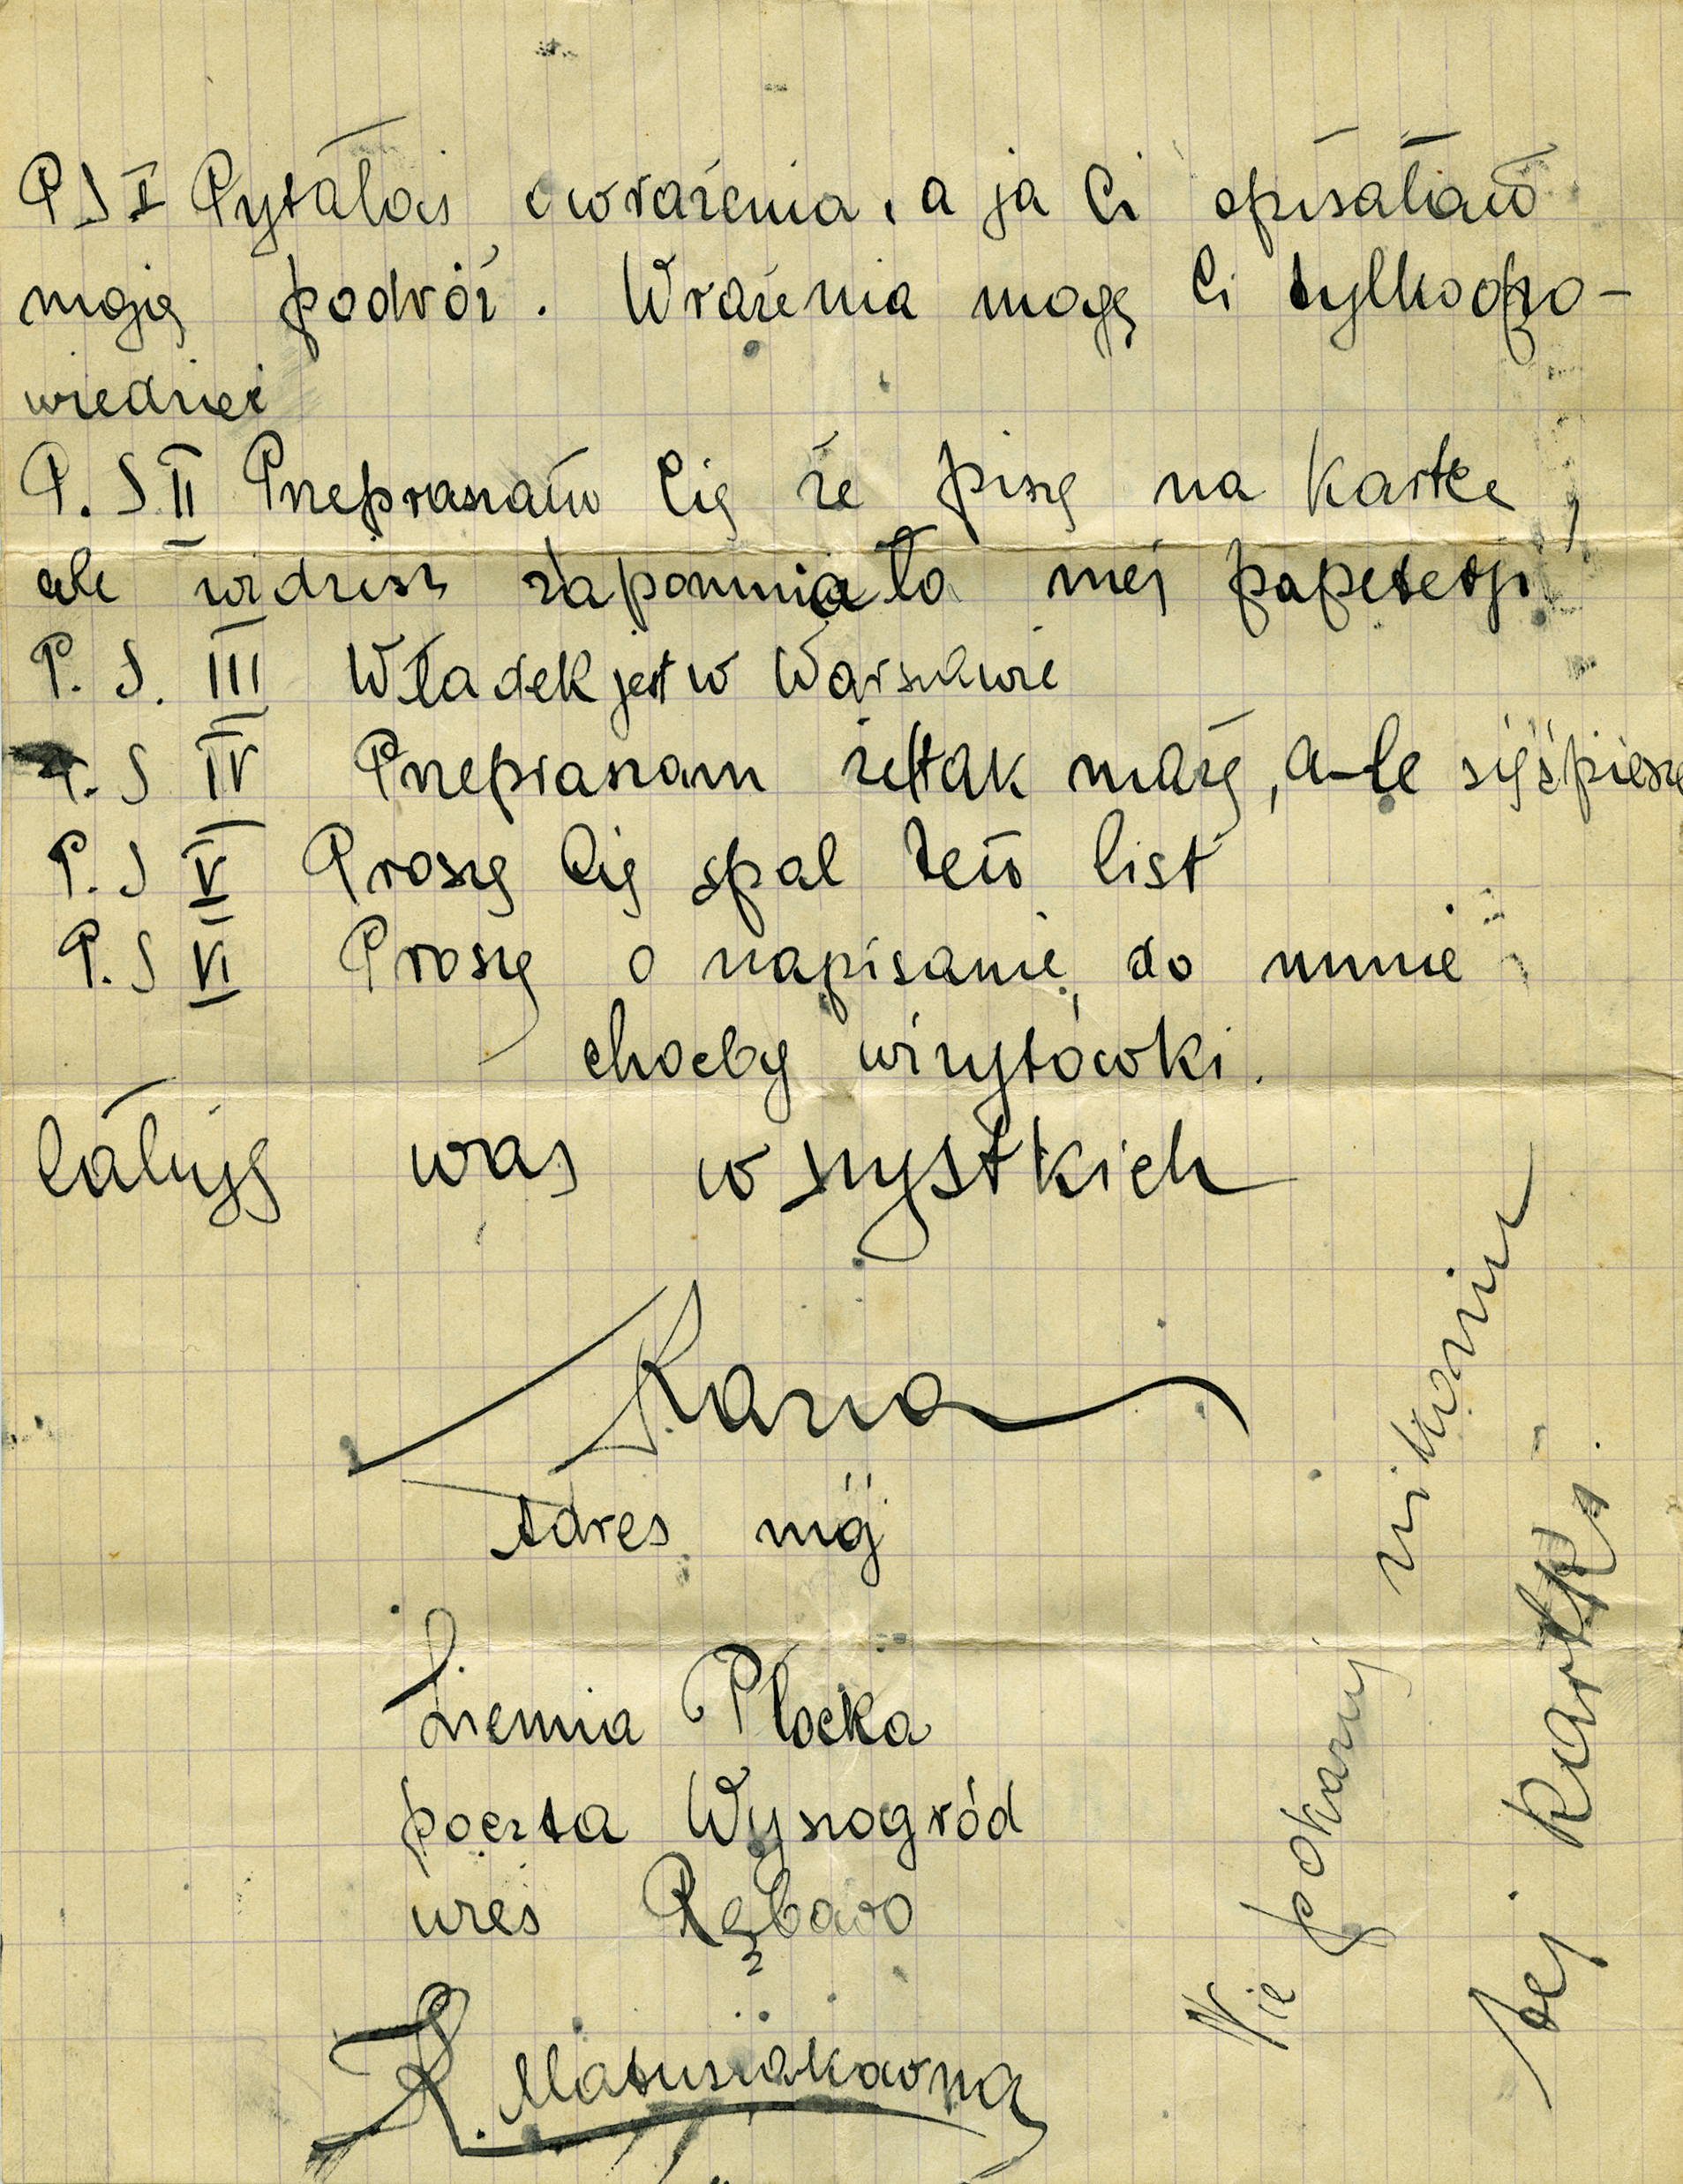 P S I Pytałaś o wrażenia, a ja Ci opisałam
moją podróż. Wrażenia mogę Ci tylko opo-
wiedzieć
P. S II Przepraszam Cię że piszę na kartce,
ale widzisz zapomniała mej papeterji
P. S. III Władek jest w Warszawie
P. S IV Przepraszam że tak mażę, a-le się śpieszę
P. S V Proszę Cię spal ten list
P. S VI Proszę o napisanie do mnie
choćby wizytówki.
Całuję was wszystkich
Kazia
Adres mój
Ziemia Płocka
poczta Wyszogród
wieś Rębowo
K. Matusiakówna
Nie pokazuj nikomu
tej kartki.